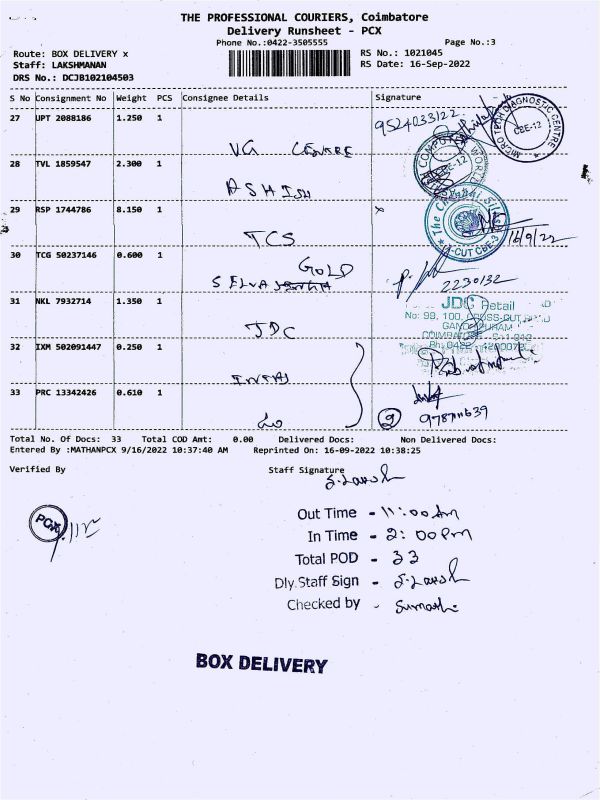 THE PROFESSIONAL COURIERS, Coimbatore
Delivery Runsheet - PCX
Phone No.:0422-3505555
Page No.:3
Route: BOX DELIVERY x
RS No.: 1021045
Staff: LAKSHMANAN
RS Date: 16-Sep-2022
DRS No.: DCJB102104503
S No Consignment No Weight PCS Consignee Details Signature
27 UPT 2088186 1.250 1
9524033122
VG CENTRE
MICRO TECH DIAGNOSTIC CENTRE
CBE-12
28 TVL 1859547 2.300 1
ASHISH
COMPUTER WORLD
CBE-12
29 RSP 1744786 8.150 1 x
TCS
The Chennai Silks
X-CUT CBE-3
16/9/22
30 TCG 50237146 0.600 1
SELVA GOLD
2230132
31 NKL 7932714 1.350 1
JDC
JDC Retail
No: 99, 100, CROSS-CUT ROAD
GANDHIPURAM
32 IXM 502091447 0.250 1
33 PRC 13342426 0.610 1
2
Total No. Of Docs: 33 Total COD Amt: 0.00 Delivered Docs: Non Delivered Docs:
Entered By :MATHANPCX 9/16/2022 10:37:40 AM Reprinted On: 16-09-2022 10:38:25
Verified By
Staff Signature
S. Laksh
PCX
Out Time - 11:00 Am
In Time - 2:00 Pm
Total POD - 33
Dly.Staff Sign - S. Laksh
Checked by - Sumathi
BOX DELIVERY